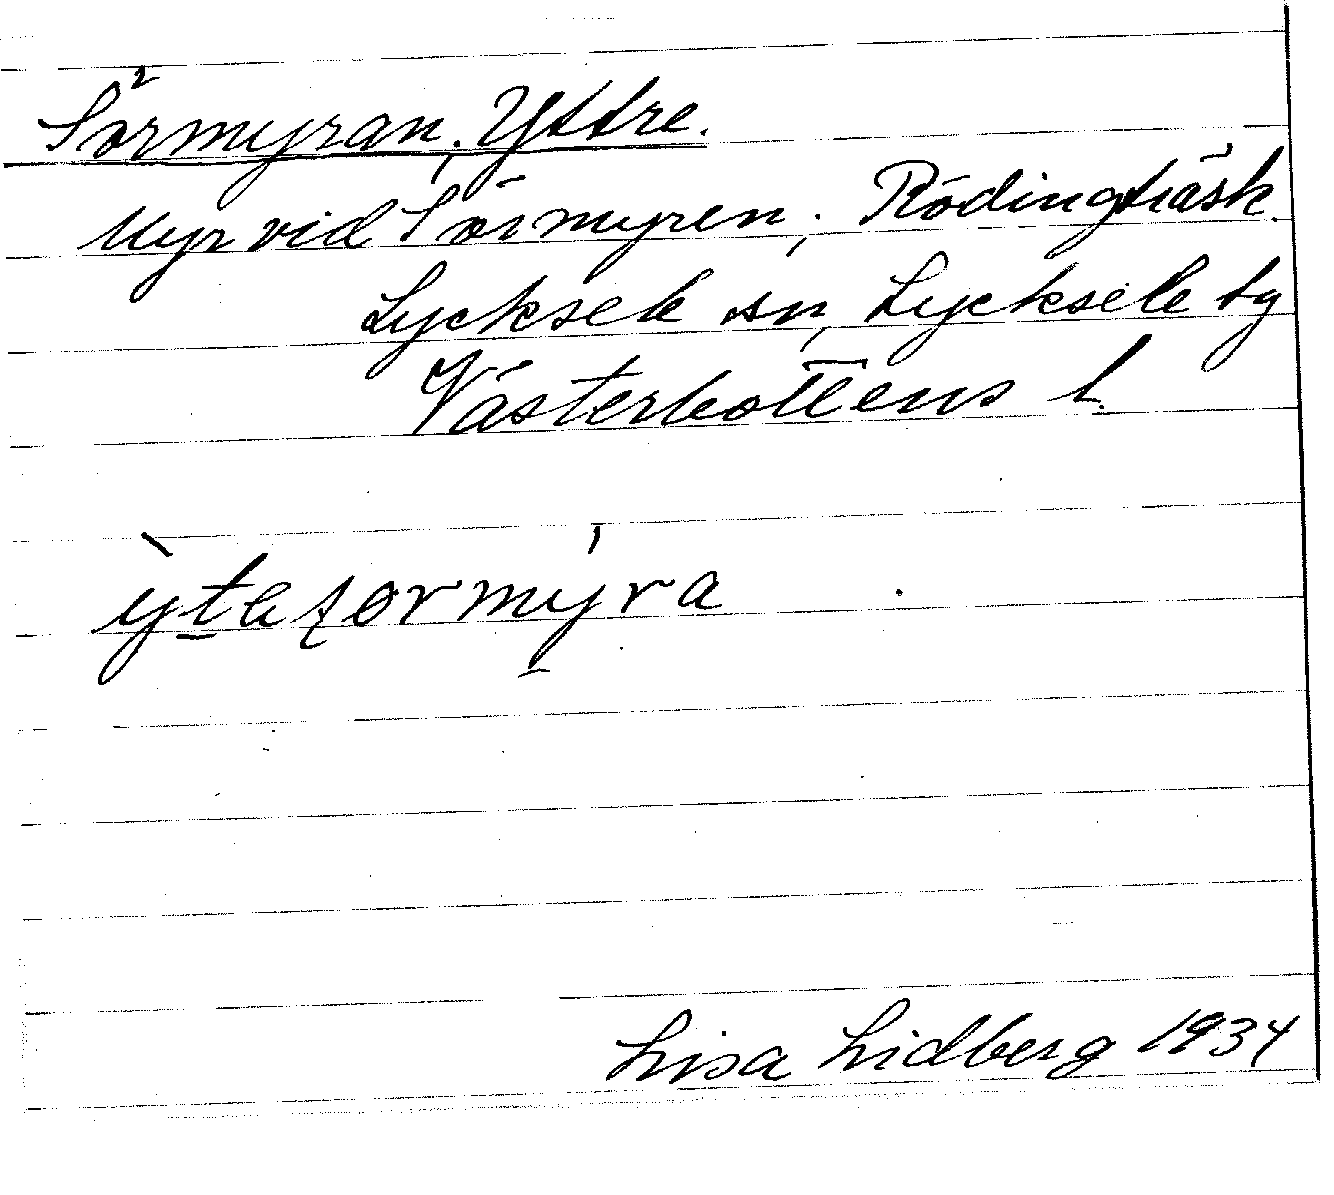 Sörmyran, Yttre.
Myr vid Sörmyren, Rödingträsk.
Lycksele sn, Lycksele tg
Västerbottens l.
Lisa Lidberg 1934